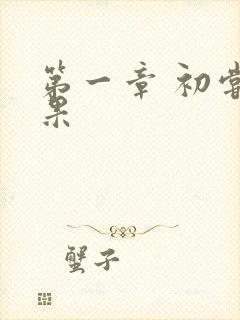 第一章 初尝
果
蟹子